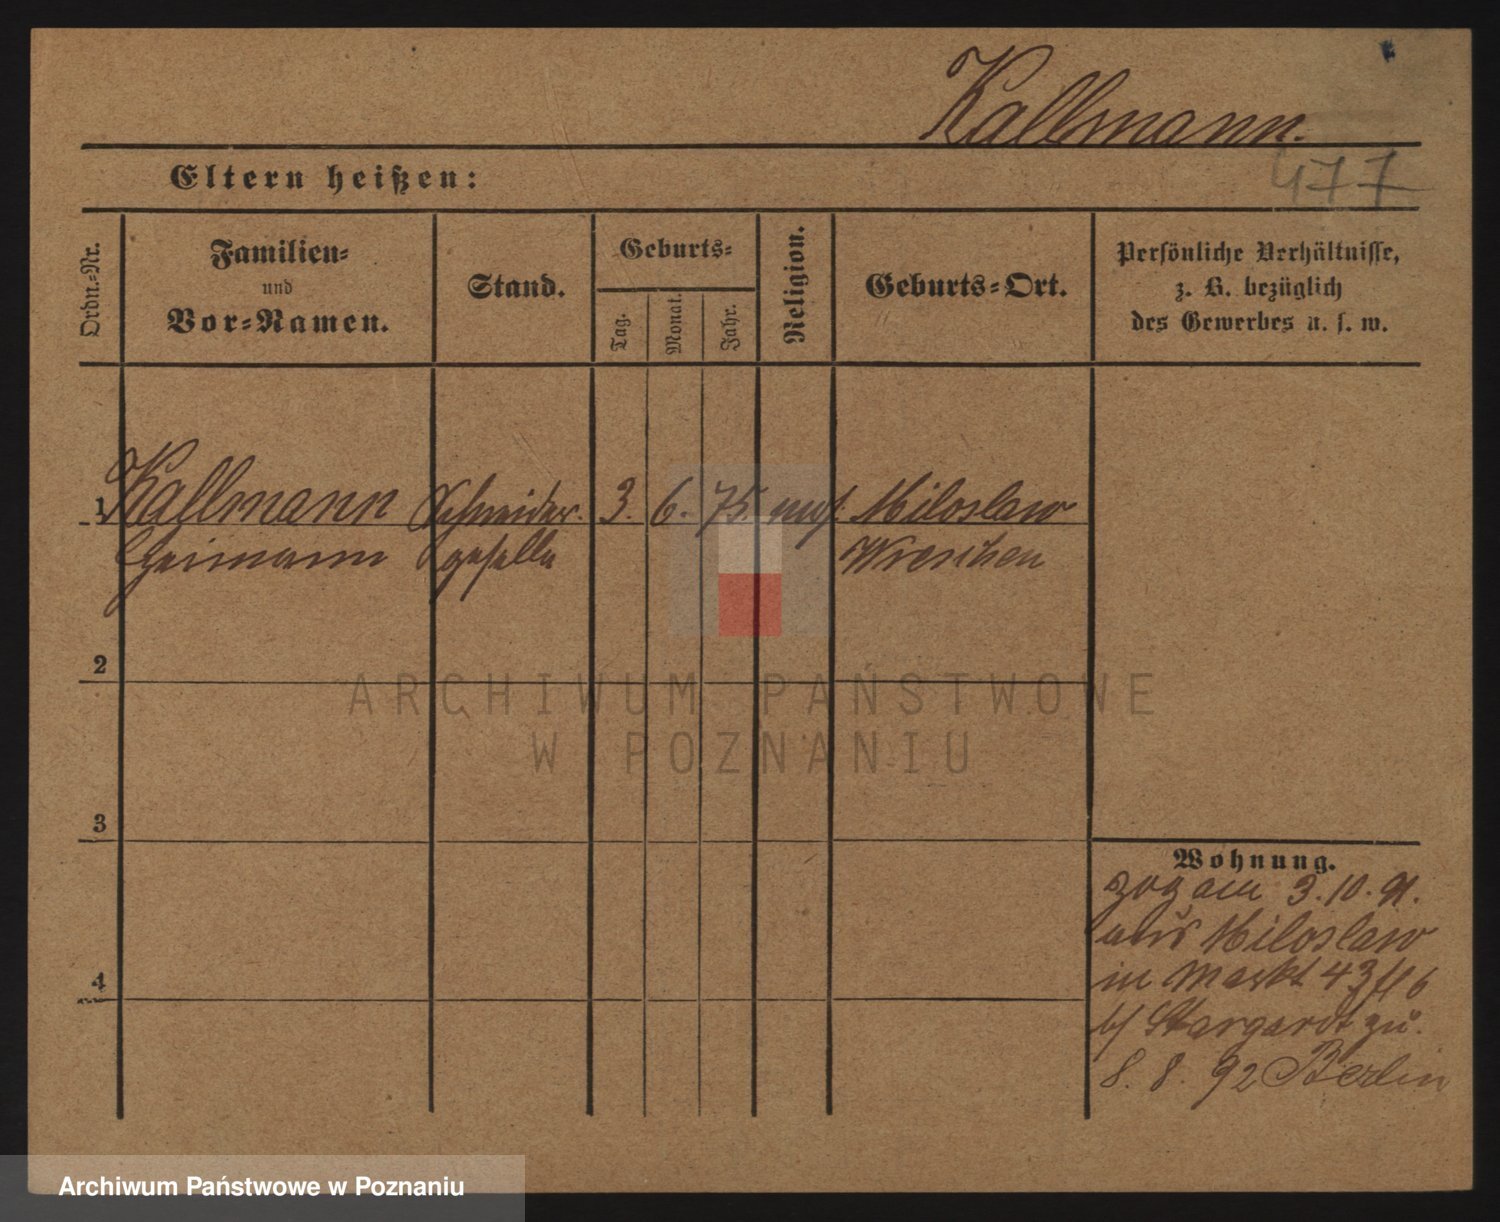 Kallmann.
477
Eltern heißen:
Ordn.-Nr.
Familien-
und
Vor-Namen.
Stand.
Geburts-
Tag.
Monat.
Jahr.
Religion.
Geburts-Ort.
Persönliche Verhältnisse,
z. B. bezüglich
des Gewerbes u. s. w.
1 Kallmann Schneider- 3. 6. 75. mos. Miloslaw
Heimann geselle Wreschen
2
3
4
Wohnung.
zog am 3.10.91.
aus Miloslaw
in Markt 43
b/ Stargardt zu.
8. 8. 92 Berlin
ARCHIWUM PAŃSTWOWE
W POZNANIU
Archiwum Państwowe w Poznaniu